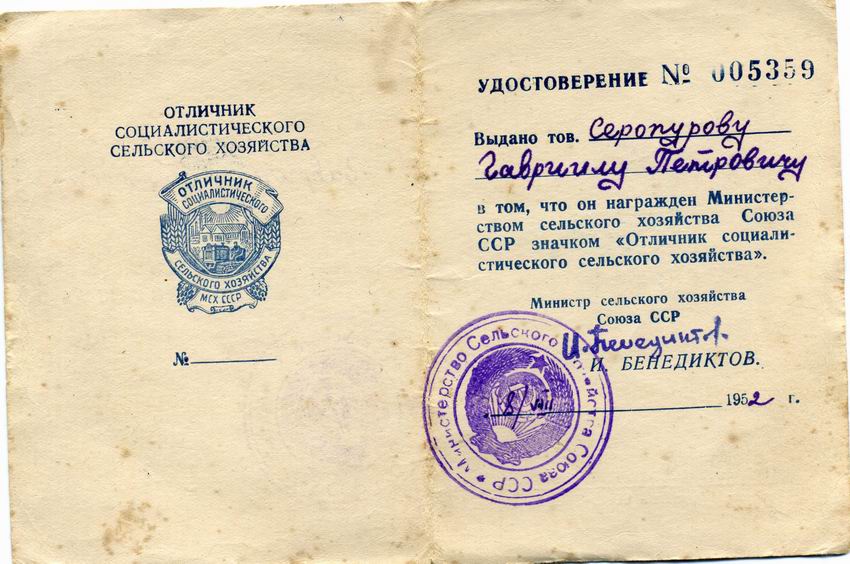 ОТЛИЧНИК
СОЦИАЛИСТИЧЕСКОГО
СЕЛЬСКОГО ХОЗЯЙСТВА
ОТЛИЧНИК
СОЦИАЛИСТИЧЕСКОГО
СЕЛЬСКОГО ХОЗЯЙСТВА
МСХ СССР
№
УДОСТОВЕРЕНИЕ № 005359
Выдано тов. Серопурову
Гавриилу Петровичу
в том, что он награжден Министер-
ством сельского хозяйства Союза
ССР значком «Отличник социали-
стического сельского хозяйства».
Министр сельского хозяйства
Союза ССР
И. Бенедиктов.
И. БЕНЕДИКТОВ.
8/VIII 1952 г.
Министерство Сельского Хозяйства Союза ССР